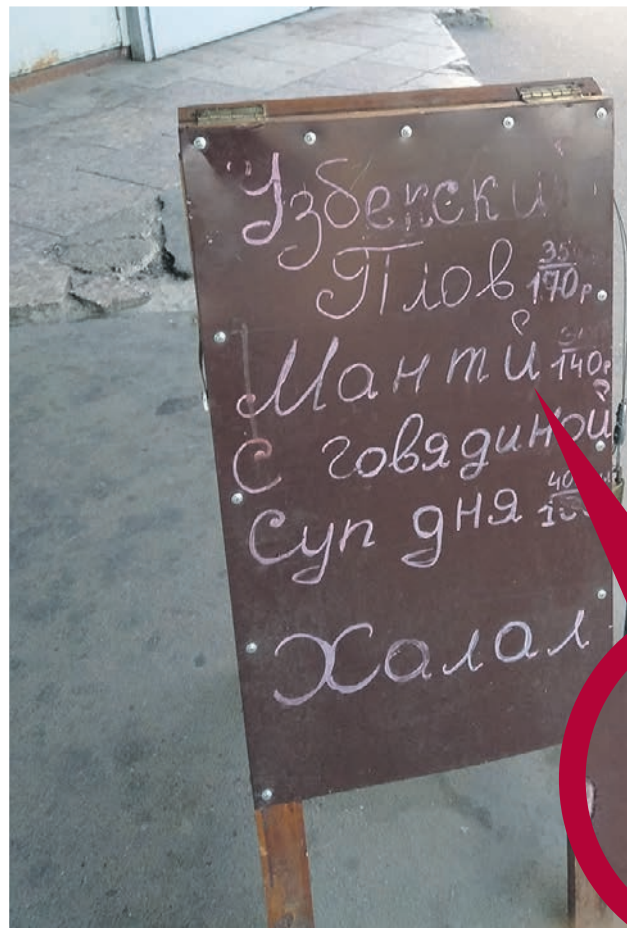 Узбекски
Плов 170р
Мантй 140р
С говядиной
Суп дня
Халал